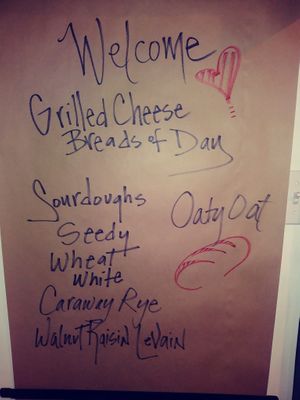 Welcome
Grilled Cheese
Breads of Day
Sourdoughs
Oaty Oat
Seedy
Wheat
White
Caraway Rye
Walnut Raisin Levain